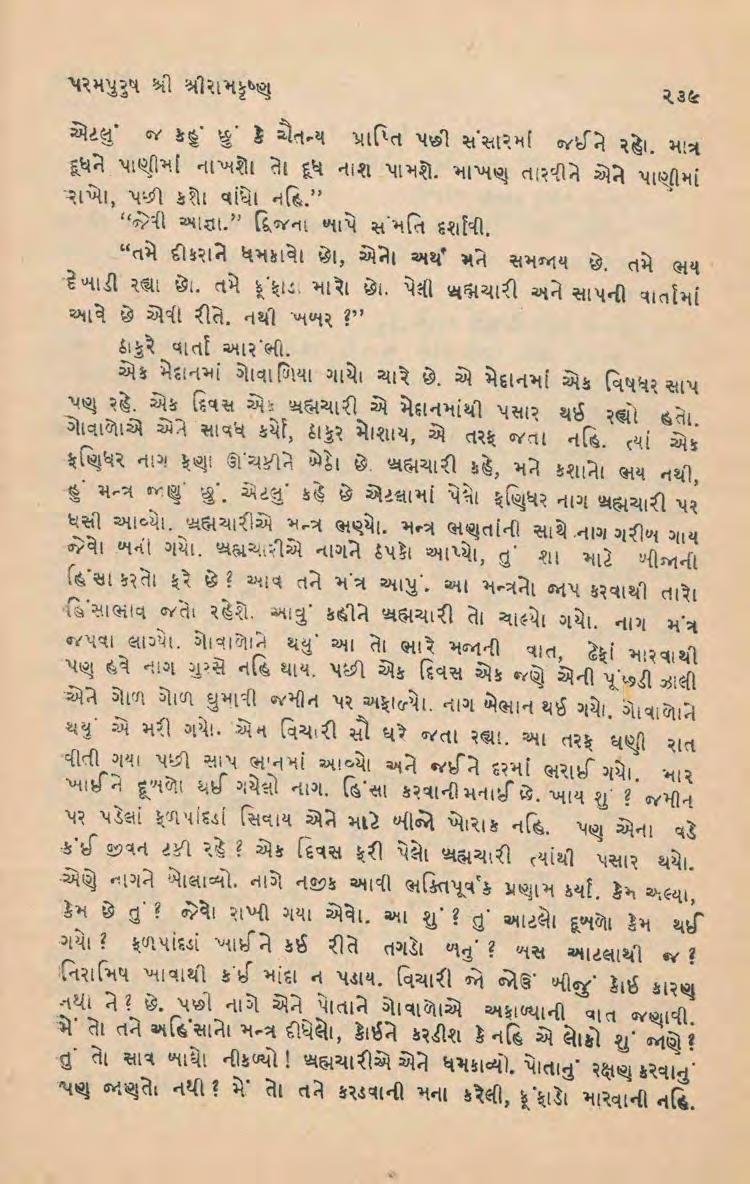 પરમપુરુષ શ્રી શ્રીરામકૃષ્ણ
૨૩૯
એટલું જ કહું છું કે ચૈતન્ય પ્રાપ્તિ પછી સંસારમાં જઈને રહો. માત્ર
દૂધને પાણીમાં નાખશો તો દૂધ નાશ પામશે. માખણ તારવીને એને પાણીમાં
રાખો, પછી કશો વાંધો નહિ.”
“જેવી આજ્ઞા.” દ્વિજના બાપે સંમતિ દર્શાવી.
“તમે દીકરાને ધમકાવો છો, એનો અર્થ મને સમજાય છે. તમે ભય
દેખાડી રહ્યા છો. તમે ફૂંફાડા મારો છો. પેલી બ્રહ્મચારી અને સાપની વાર્તામાં
આવે છે એવી રીતે. નથી ખબર ?”
ઠાકુરે વાર્તા આરંભી.
એક મેદાનમાં ગોવાળિયા ગાયો ચારે છે. એ મેદાનમાં એક વિષધર સાપ
પણ રહે. એક દિવસ એક બ્રહ્મચારી એ મેદાનમાંથી પસાર થઈ રહ્યો હતો.
ગોવાળોએ એને સાવધ કર્યો, ઠાકુર મોશાય, એ તરફ જતા નહિ. ત્યાં એક
ફણિધર નાગ ફણા ઊંચકીને બેઠો છે. બ્રહ્મચારી કહે, મને કશાનો ભય નથી,
હું મન્ત્ર જાણું છું. એટલું કહે છે એટલામાં પેલો ફણિધર નાગ બ્રહ્મચારી પર
ધસી આવ્યો. બ્રહ્મચારીએ મન્ત્ર ભણ્યો. મન્ત્ર ભણતાંની સાથે નાગ ગરીબ ગાય
જેવો બની ગયો. બ્રહ્મચારીએ નાગને ઠપકો આપ્યો, તું શા માટે બીજાની
હિંસા કરતો ફરે છે ? આવ તને મંત્ર આપું. આ મન્ત્રનો જાપ કરવાથી તારો
હિંસાભાવ જતો રહેશે. આવું કહીને બ્રહ્મચારી તો ચાલ્યો ગયો. નાગ મંત્ર
જપવા લાગ્યો. ગોવાળોને થયું આ તો ભારે મજાની વાત, ઢેફાં મારવાથી
પણ હવે નાગ ગુસ્સે નહિ થાય. પછી એક દિવસ એક જણે એની પૂંછડી ઝાલી
એને ગોળ ગોળ ઘુમાવી જમીન પર અફાળ્યો. નાગ બેભાન થઈ ગયો. ગોવાળોને
થયું એ મરી ગયો. એમ વિચારી સૌ ઘરે જતા રહ્યા. આ તરફ ઘણી રાત
વીતી ગયા પછી સાપ ભાનમાં આવ્યો અને જઈને દરમાં ભરાઈ ગયો. માર
ખાઈને દૂબળો થઈ ગયેલો નાગ. હિંસા કરવાની મનાઈ છે. ખાય શું ? જમીન
પર પડેલાં ફળપાંદડાં સિવાય એને માટે બીજો ખોરાક નહિ. પણ એના વડે
કંઈ જીવન ટકી રહે ? એક દિવસ ફરી પેલો બ્રહ્મચારી ત્યાંથી પસાર થયો.
એણે નાગને બોલાવ્યો. નાગે નજીક આવી ભક્તિપૂર્વક પ્રણામ કર્યા. કેમ અલ્યા,
કેમ છે તું ? જેવો રાખી ગયા એવો. આ શું ? તું આટલો દૂબળો કેમ થઈ
ગયો ? ફળપાંદડાં ખાઈને કઈ રીતે તગડો બનું ? બસ આટલાથી જ ?
નિરામિષ ખાવાથી કંઈ માંદા ન પડાય. વિચારી જો જોઉં બીજું કોઈ કારણ
નથી ને ? છે. પછી નાગે એને પોતાને ગોવાળોએ અફાળ્યાની વાત જણાવી.
મેં તો તને અહિંસાનો મન્ત્ર દીધેલો, કોઈને કરડીશ કે નહિ એ લોકો શું જાણે ?
તું તો સાવ બાઘો નીકળ્યો ! બ્રહ્મચારીએ એને ધમકાવ્યો. પોતાનું રક્ષણ કરવાનું
પણ જાણતો નથી ? મેં તો તને કરડવાની મના કરેલી, ફૂંફાડો મારવાની નહિ.